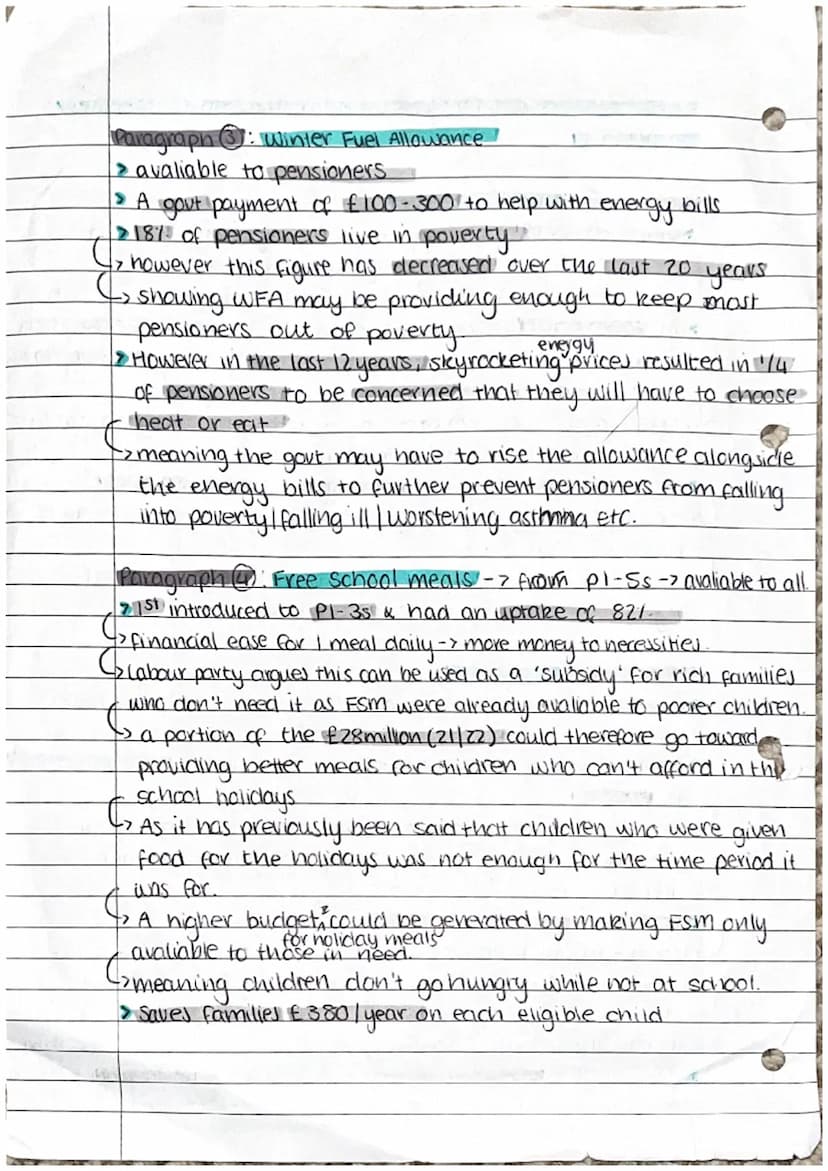 Paragraph ③: Winter Fuel Allowance
> avaliable to pensioners
> A govt payment of £100-300 to help with energy bills
> 18% of pensioners live in poverty
↳ however this figure has decreased over the last 20 years
↳ showing WFA may be providing enough to keep most
pensioners out of poverty
> However in the last 12 years, skyrocketing energy prices resulted in 1/4
of pensioners to be concerned that they will have to choose
heat or eat
↳ meaning the govt may have to rise the allowance alongside
the energy bills to further prevent pensioners from falling
into poverty/falling ill/worstening asthma etc.
Paragraph ④: Free School meals -> from P1-5s -> avaliable to all
> 1st introduced to P1-3s & had an uptake of 82%
↳ financial ease for 1 meal daily -> more money to necessities.
↳ Labour party argues this can be used as a 'subsidy' for rich families
who don't need it as FSM were already avaliable to poorer children.
↳ a portion of the £28million (21/22) could therefore go toward
providing better meals for children who can't afford in the
school holidays
↳ As it has previously been said that children who were given
food for the holidays was not enough for the time period it
was for.
↳ A higher budget for holiday meals could be generated by making FSM only
avaliable to those in need.
↳ meaning children don't go hungry while not at school.
> Saves families £380/year on each eligible child